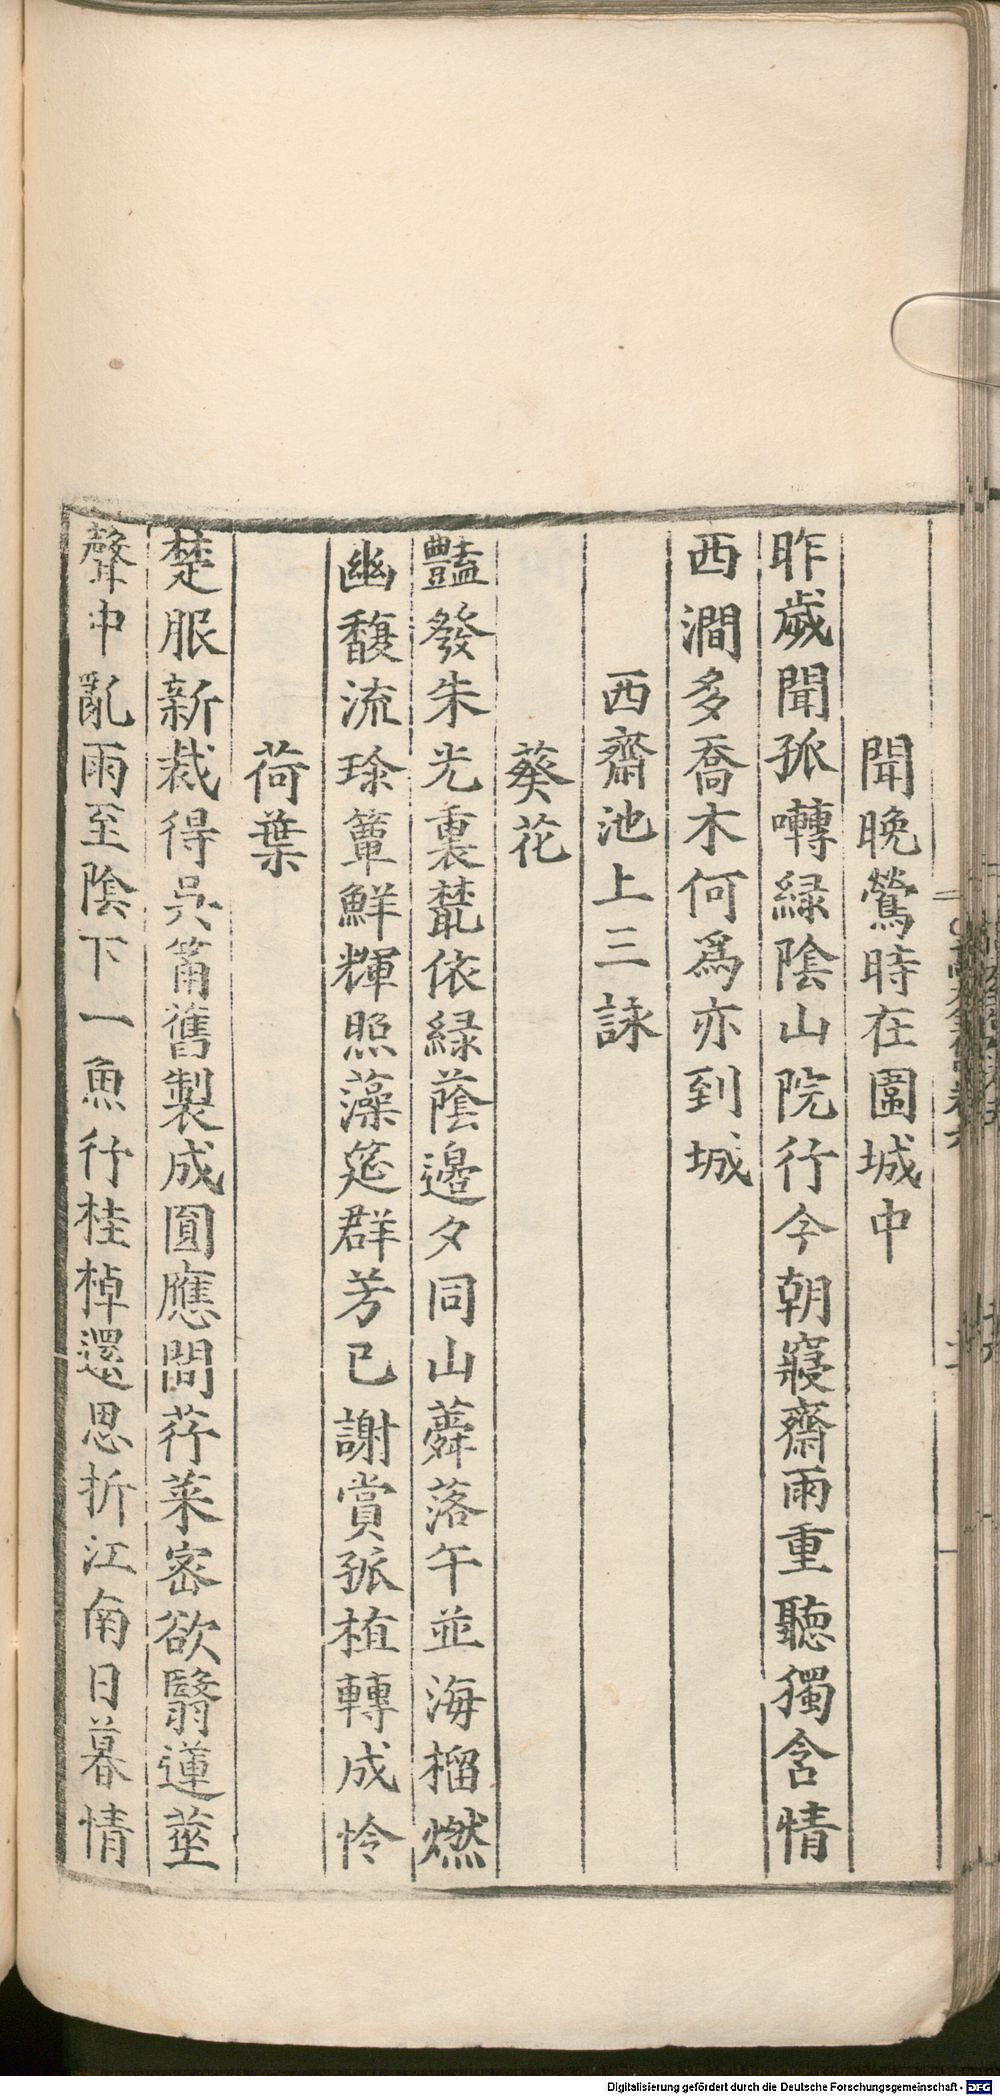 聞晚鶯時在圍城中
昨歲聞孤囀緑陰山院行今朝寢齋雨重聽獨含情
西澗多喬木何爲亦到城
西齋池上三詠
葵花
豔發朱光裏蘩依緑蔭邉夕同山蕣落午並海榴燃
幽馥流珍簟鮮輝照藻筵群芳已謝賞孤植轉成怜
荷葉
楚服新裁得吳筩舊製成圓應間荇菜密欲翳蓮莖
聲中亂雨至陰下一魚行桂棹還思折江南日暮情
Digitalisierung gefördert durch die Deutsche Forschungsgemeinschaft - DFG